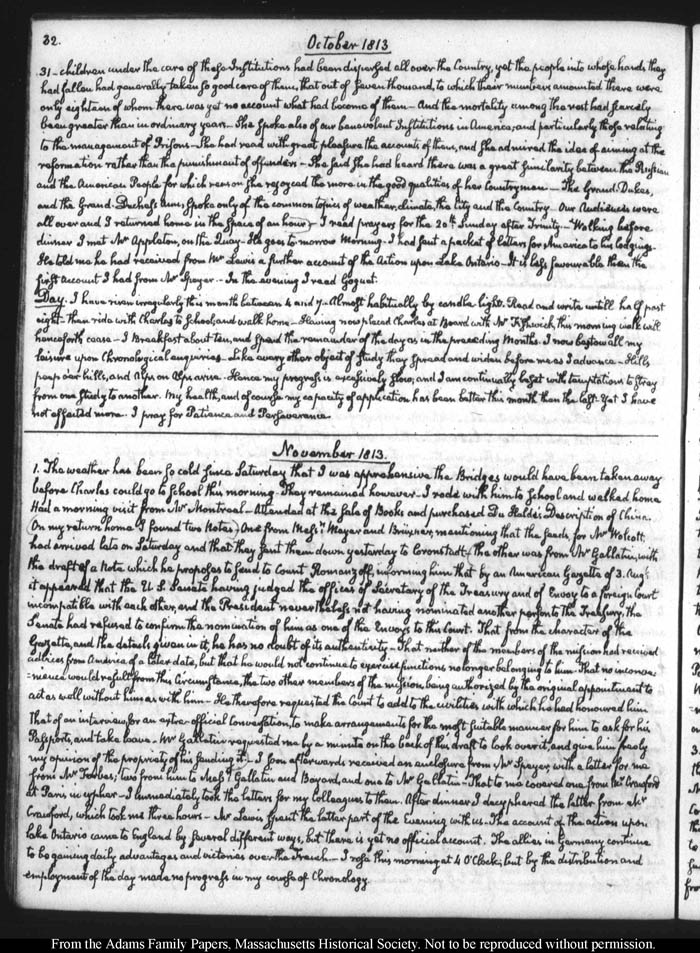 32.
October 1813
31 - children under the care of these Institutions had been dispersed all over the Country, yet the people into whose hands they
had fallen had generally taken so good care of them, that out of seven thousand, to which their numbers amounted there were
only eighteen of whom there was yet no account what had become of them - And the mortality among the rest had scarcely
been greater than in ordinary years. She spoke also of our benevolent Institutions in America, and particularly those relating
to the management of Prisons - She had read with great pleasure the accounts of them, and she admired the idea of aiming at the
reformation rather than the punishment of offenders - She said she had heard there was a great similarity between the Russian
and the American People for which reason she rejoyced the more in the good qualities of her Countrymen - The Grand Dukes,
and the Grand-Duchess Ann, spoke only of the common topics of weather, climate, the City and the Country - Our Audiences were
all over and I returned home in the space of an hour - I read prayers for the 20th Sunday after Trinity - Walking before
dinner I met Mr Appleton, on the Quay - He goes to-morrow Morning - I had sent a packet of letters for America to his lodgings.
He told me he had received from Mr Lewis a further account of the Action upon Lake Ontario - It is less favourable than the
first Account I had from Mr Speyer - In the evening I read Goguet.
Day. I have risen irregularly this month between 4 and 7 - Almost habitually by candle light. Read and write untill half past
eight - then ride with Charles to School, and walk home - Having now placed Charles at Board with Mr Fishwick, this morning walk will
henceforth cease - I Breakfast about ten, and spend the remainder of the day as in the preceding Months. I now bestow all my
leisure upon Chronological enquiries - Like every other object of study they spread and widen before me as I advance - Hills
peep o'er hills, and Alps on Alps arise. Hence my progress is excessively slow, and I am continually beset with temptations to stray
from one study to another. My health, and of course my capacity of application has been better this month than the last. Yet I have
not effected more. I pray for Patience and Perseverance.
November 1813.
1. The weather has been so cold since Saturday that I was apprehensive the Bridges would have been taken away
before Charles could go to School this morning - They remained however - I rode with him to School and walked home
Had a morning visit from Mr Montreal - Attended at the sale of Books and purchased Du Halde's Description of China.
On my return home I found two Notes; One from Messrs Meyer and Bruxner, mentioning that the seeds, for Mr Wolcott
had arrived late on Saturday and that they sent them down yesterday to Cronstadt - The other was from Mr Gallatin, with
the draft of a Note which he proposes to send to Count Romanzoff, informing him that by an American Gazette of 3. Augt
it appeared that the U.S. Senate having judged the offices of Secretary of the Treasury and of Envoy to a foreign Court
incompatible with each other, and the President nevertheless not having nominated another person to the Treasury, the
Senate had refused to confirm the nomination of him as one of the Envoys to this Court. That from the character of the
Gazette, and the details given in it, he has no doubt of its authenticity - That neither of the members of the mission had received
advices from America of a later date, but that he would not continue to exercise functions no longer belonging to him - That no inconve-
-nience would result from this Circumstance, the two other members of the mission, being authorized by the original appointment to
act as well without him as with him - He therefore requested the Count to add to the civilities with which he had honoured him
That of an interview, for an extra-official Conversation, to make arrangements for the most suitable manner for him to ask for his
Passports, and take leave - Mr Gallatin requested me by a minute on the back of this draft to look over it, and give him freely
my opinion of the propriety of his sending it - I soon afterwards received an enclosure from Mr Speyer, with a letter for me
from Mr Forbes; two from him to Messrs Gallatin and Bayard, and one to Mr Gallatin - That to me covered one from Mr Crawford
at Paris in cypher - I immediately took the letters for my Colleagues to them. After dinner I decyphered the letter from Mr
Crawford, which took me three hours - Mr Lewis spent the latter part of the Evening with us - The account of the action upon
Lake Ontario came to England by several different ways, but there is yet no official account. The allies in Germany continue
to be gaining daily advantages and victories over the French - I rose this morning at 4 O'Clock, but by the distribution and
employment of the day made no progress in my course of Chronology.
From the Adams Family Papers, Massachusetts Historical Society. Not to be reproduced without permission.